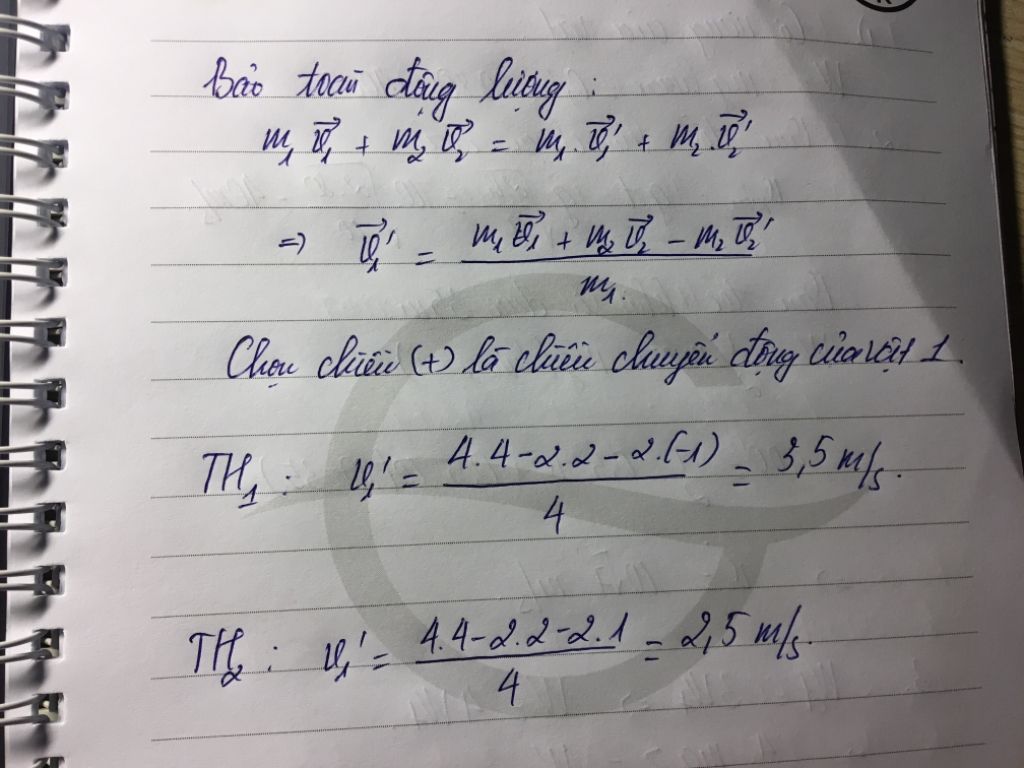 Bảo toàn động lượng :
m₁ v⃗₁ + m₂ v⃗₂ = m₁ . v⃗₁' + m₂ . v⃗₂'
=> v⃗₁' = (m₁ v⃗₁ + m₂ v⃗₂ - m₂ v⃗₂') / m₁.
Chọn chiều (+) là chiều chuyển động của vật 1.
TH₁ : v₁' = (4.4 - 2.2 - 2.(-1)) / 4 = 3,5 m/s.
TH₂ : v₁' = (4.4 - 2.2 - 2.1) / 4 = 2,5 m/s.